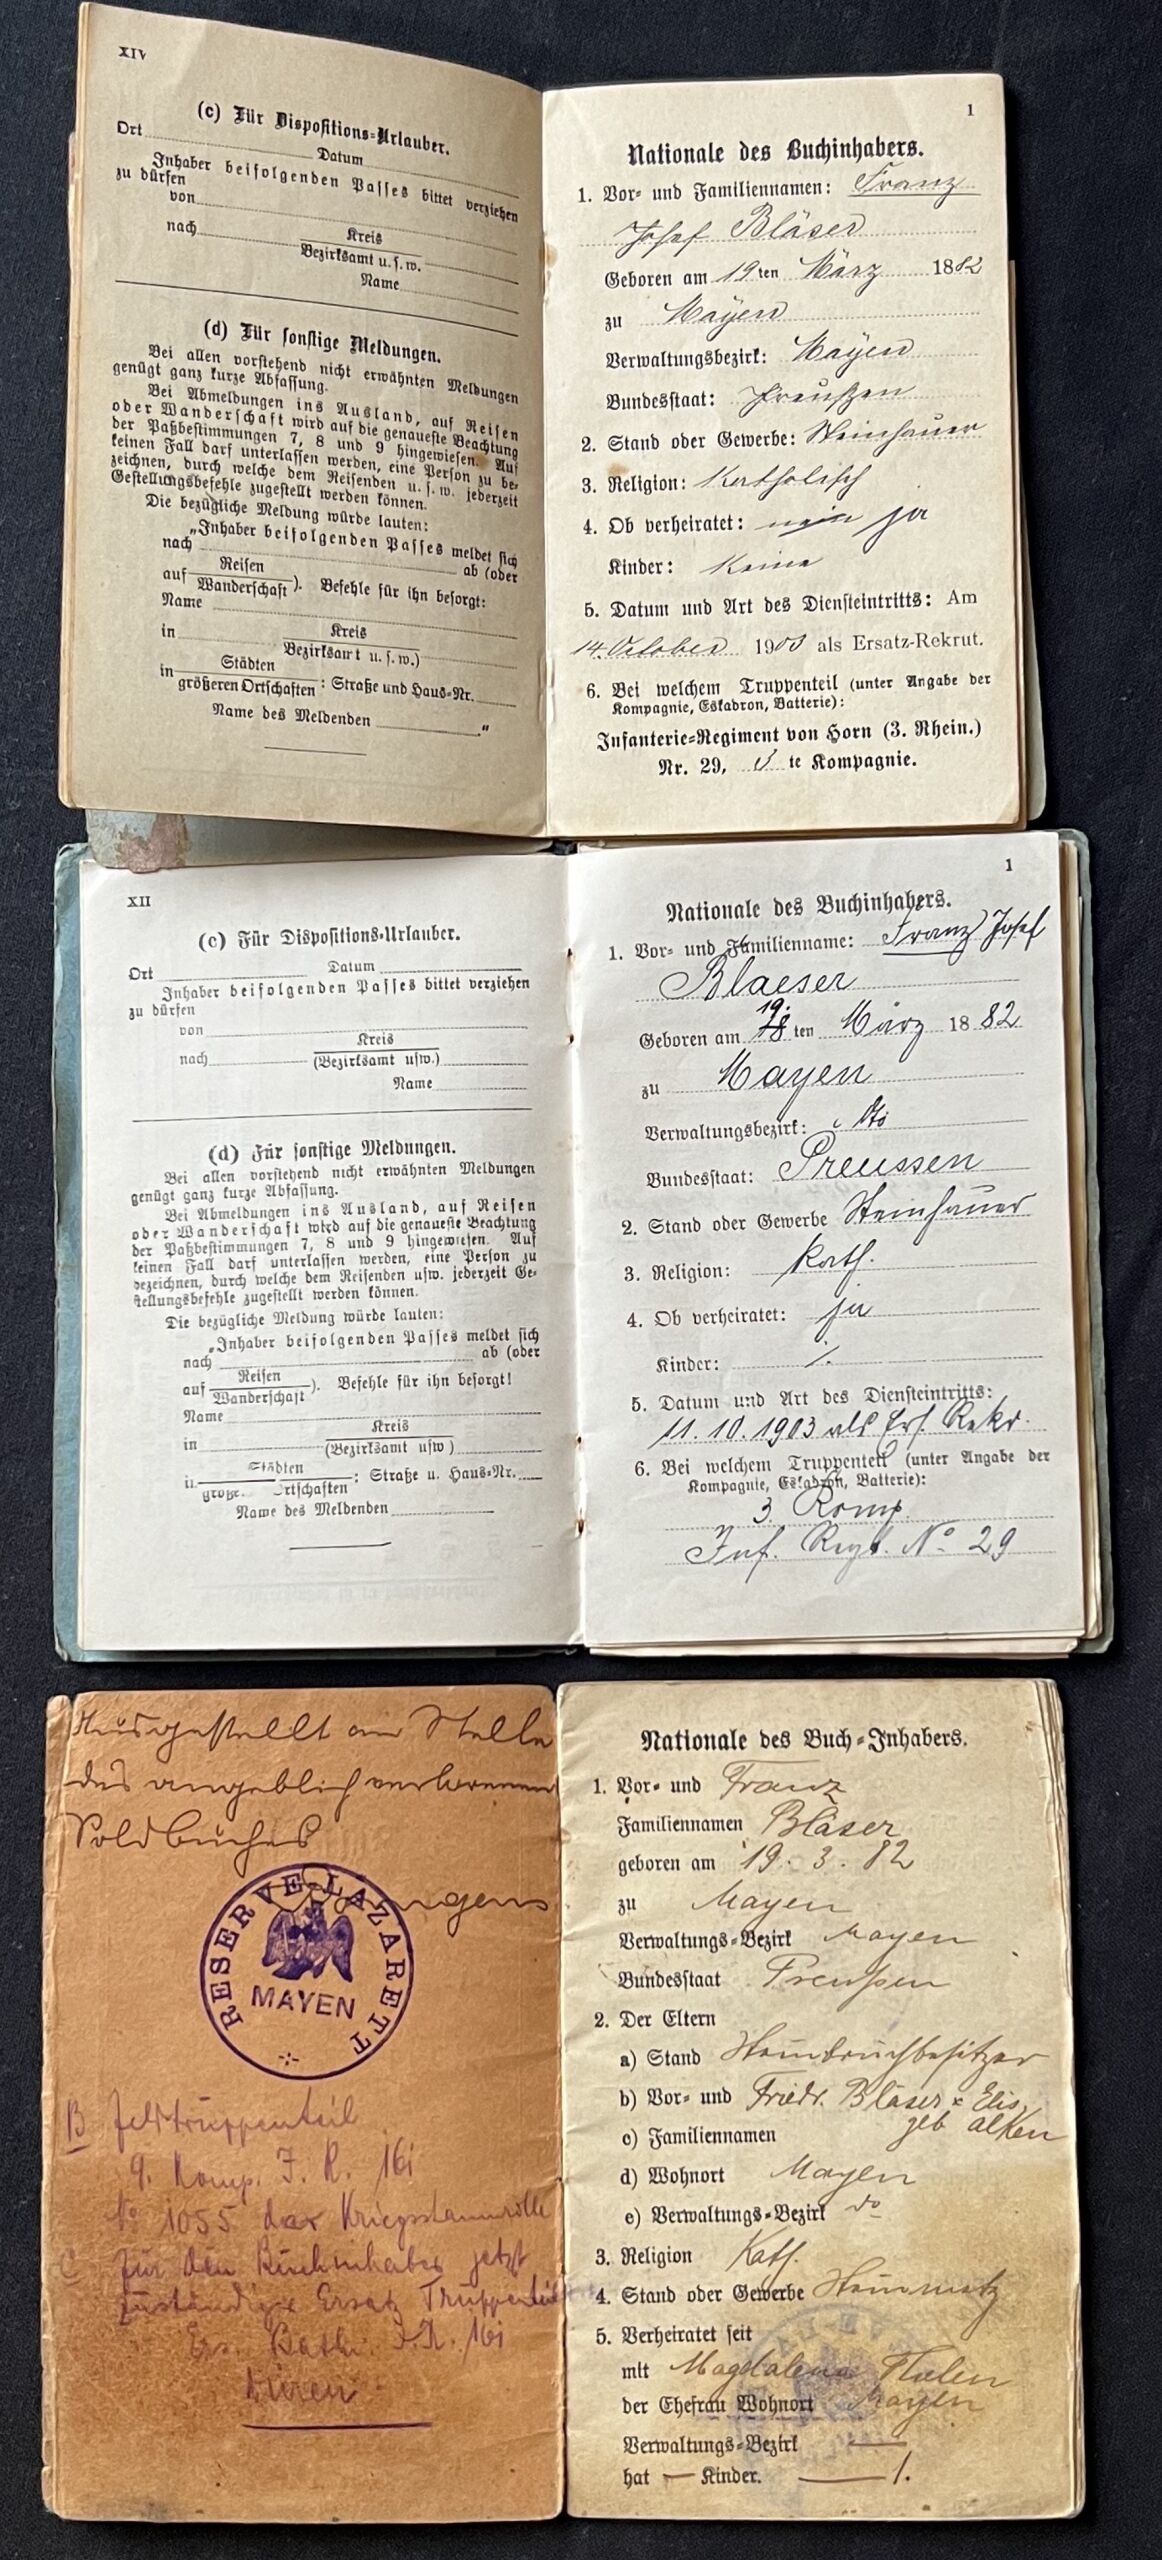 XIV
(c) Für Dispositions-Urlauber.
Ort Datum
Inhaber beifolgenden Passes bittet verziehen
zu dürfen
von
nach Kreis
Bezirksamt u. s. w.
Name
(d) Für sonstige Meldungen.
Bei allen vorstehend nicht erwähnten Meldungen
genügt ganz kurze Abfassung.
Bei Abmeldungen ins Ausland, auf Reisen
oder Wanderschaft wird auf die genaueste Beachtung
der Paßbestimmungen 7, 8 und 9 hingewiesen. Auf
keinen Fall darf unterlassen werden, eine Person zu be-
zeichnen, durch welche dem Reisenden u. s. w. jederzeit
Gestellungsbefehle zugestellt werden können.
Die bezügliche Meldung würde lauten:
„Inhaber beifolgenden Passes meldet sich
nach ab (oder
auf Reisen
Wanderschaft). Befehle für ihn besorgt:
Name
in Kreis
Bezirksamt u. s. w.)
in Städten
größeren Ortschaften: Straße und Haus-Nr.
Name des Meldenden "
1
Nationale des Buchinhabers.
1. Vor- und Familiennamen: Franz
Josef Bläser
Geboren am 19ten März 1882
zu Mayen
Verwaltungsbezirk: Mayen
Bundesstaat: Preußen
2. Stand oder Gewerbe: Steinhauer
3. Religion: Katholisch
4. Ob verheiratet: nein ja
Kinder: Keine
5. Datum und Art des Diensteintritts: Am
14. October 1903 als Ersatz-Rekrut.
6. Bei welchem Truppenteil (unter Angabe der
Kompagnie, Eskadron, Batterie):
Infanterie-Regiment von Horn (3. Rhein.)
Nr. 29, te Kompagnie.
XII
(c) Für Dispositions-Urlauber.
Ort Datum
Inhaber beifolgenden Passes bittet verziehen
zu dürfen
von
nach Kreis
(Bezirksamt usw.)
Name
(d) Für sonstige Meldungen.
Bei allen vorstehend nicht erwähnten Meldungen
genügt ganz kurze Abfassung.
Bei Abmeldungen ins Ausland, auf Reisen
oder Wanderschaft wird auf die genaueste Beachtung
der Paßbestimmungen 7, 8 und 9 hingewiesen. Auf
keinen Fall darf unterlassen werden, eine Person zu
bezeichnen, durch welche dem Reisenden usw. jederzeit Ge-
stellungsbefehle zugestellt werden können.
Die bezügliche Meldung würde lauten:
„Inhaber beifolgenden Passes meldet sich
nach ab (oder
auf Reisen
Wanderschaft). Befehle für ihn besorgt!
Name
in Kreis
(Bezirksamt usw)
Städten
größ. Ortschaften: Straße u. Haus-Nr.
Name des Meldenden
1
Nationale des Buchinhabers.
1. Vor- und Familienname: Franz Josef
Blaeser
Geboren am 19. 18 ten März 1882
zu Mayen
Verwaltungsbezirk: do
Bundesstaat: Preussen
2. Stand oder Gewerbe Steinhauer
3. Religion: Kath.
4. Ob verheiratet: ja
Kinder: /.
5. Datum und Art des Diensteintritts:
11. 10. 1903 als Ers. Rekr.
6. Bei welchem Truppenteil (unter Angabe der
Kompagnie, Eskadron, Batterie):
3. Komp.
Inf. Regt. No 29
Ausgestellt an Stelle
des angeblich verlorenen
Soldbuches
RESERVE-LAZARETT
MAYEN
B Feldtruppenteil
9. Komp. I. R. 161
No 1055 der Kriegsstammrolle
C für den Buchinhaber jetzt
zuständiger Ersatz Truppenteil
Ers. Batl. I. R. 161
Düren
Nationale des Buch-Inhabers.
1. Vor- und Franz
Familiennamen Bläser
geboren am 19. 3. 82
zu Mayen
Verwaltungs-Bezirk Mayen
Bundesstaat Preußen
2. Der Eltern
a) Stand Steinbruchbesitzer
b) Vor- und Friedr. Bläser & Elis.
c) Familiennamen geb Alken
d) Wohnort Mayen
e) Verwaltungs-Bezirk do
3. Religion Kath.
4. Stand oder Gewerbe Steinmetz
5. Verheiratet seit
mit Magdalena Thelen
der Ehefrau Wohnort Mayen
Verwaltungs-Bezirk —
hat — Kinder. — /.